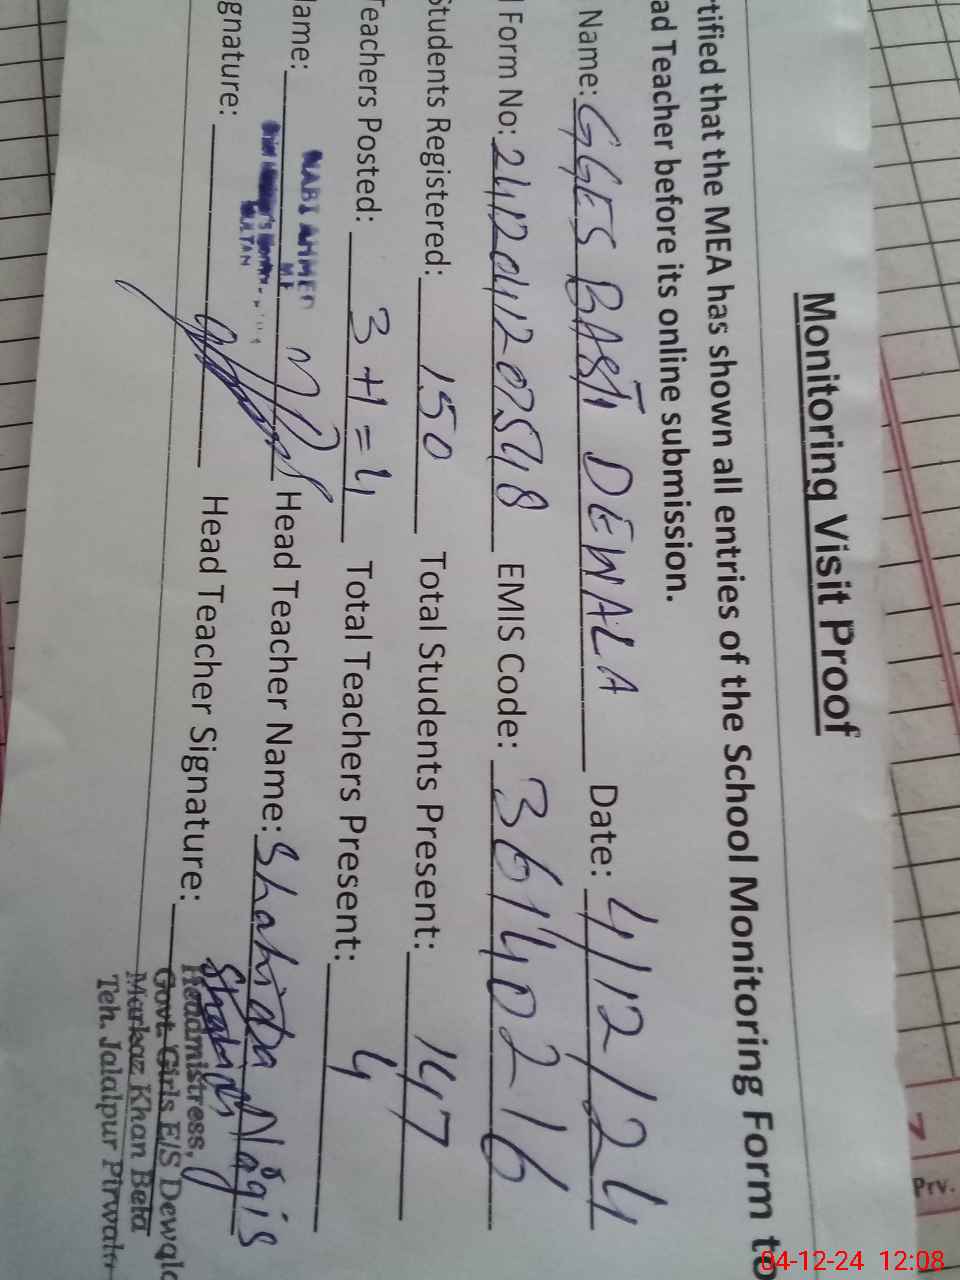 Monitoring Visit Proof
rtified that the MEA has shown all entries of the School Monitoring Form to
ad Teacher before its online submission.
Name: GGES BASTI DEWALA Date: 4/12/24
Form No: 2412041120548 EMIS Code: 36140216
Students Registered: 150 Total Students Present: 147
Teachers Posted: 3+1=4 Total Teachers Present: 4
Name: Head Teacher Name: Shahida Nargis
NABI AHMED
MULTAN
gnature: Head Teacher Signature: Shahida
Headmistress,
Govt. Girls E/S Dewala
Markaz Khan Bela
Teh. Jalalpur Pirwala
7
Prv.
04-12-24 12:08